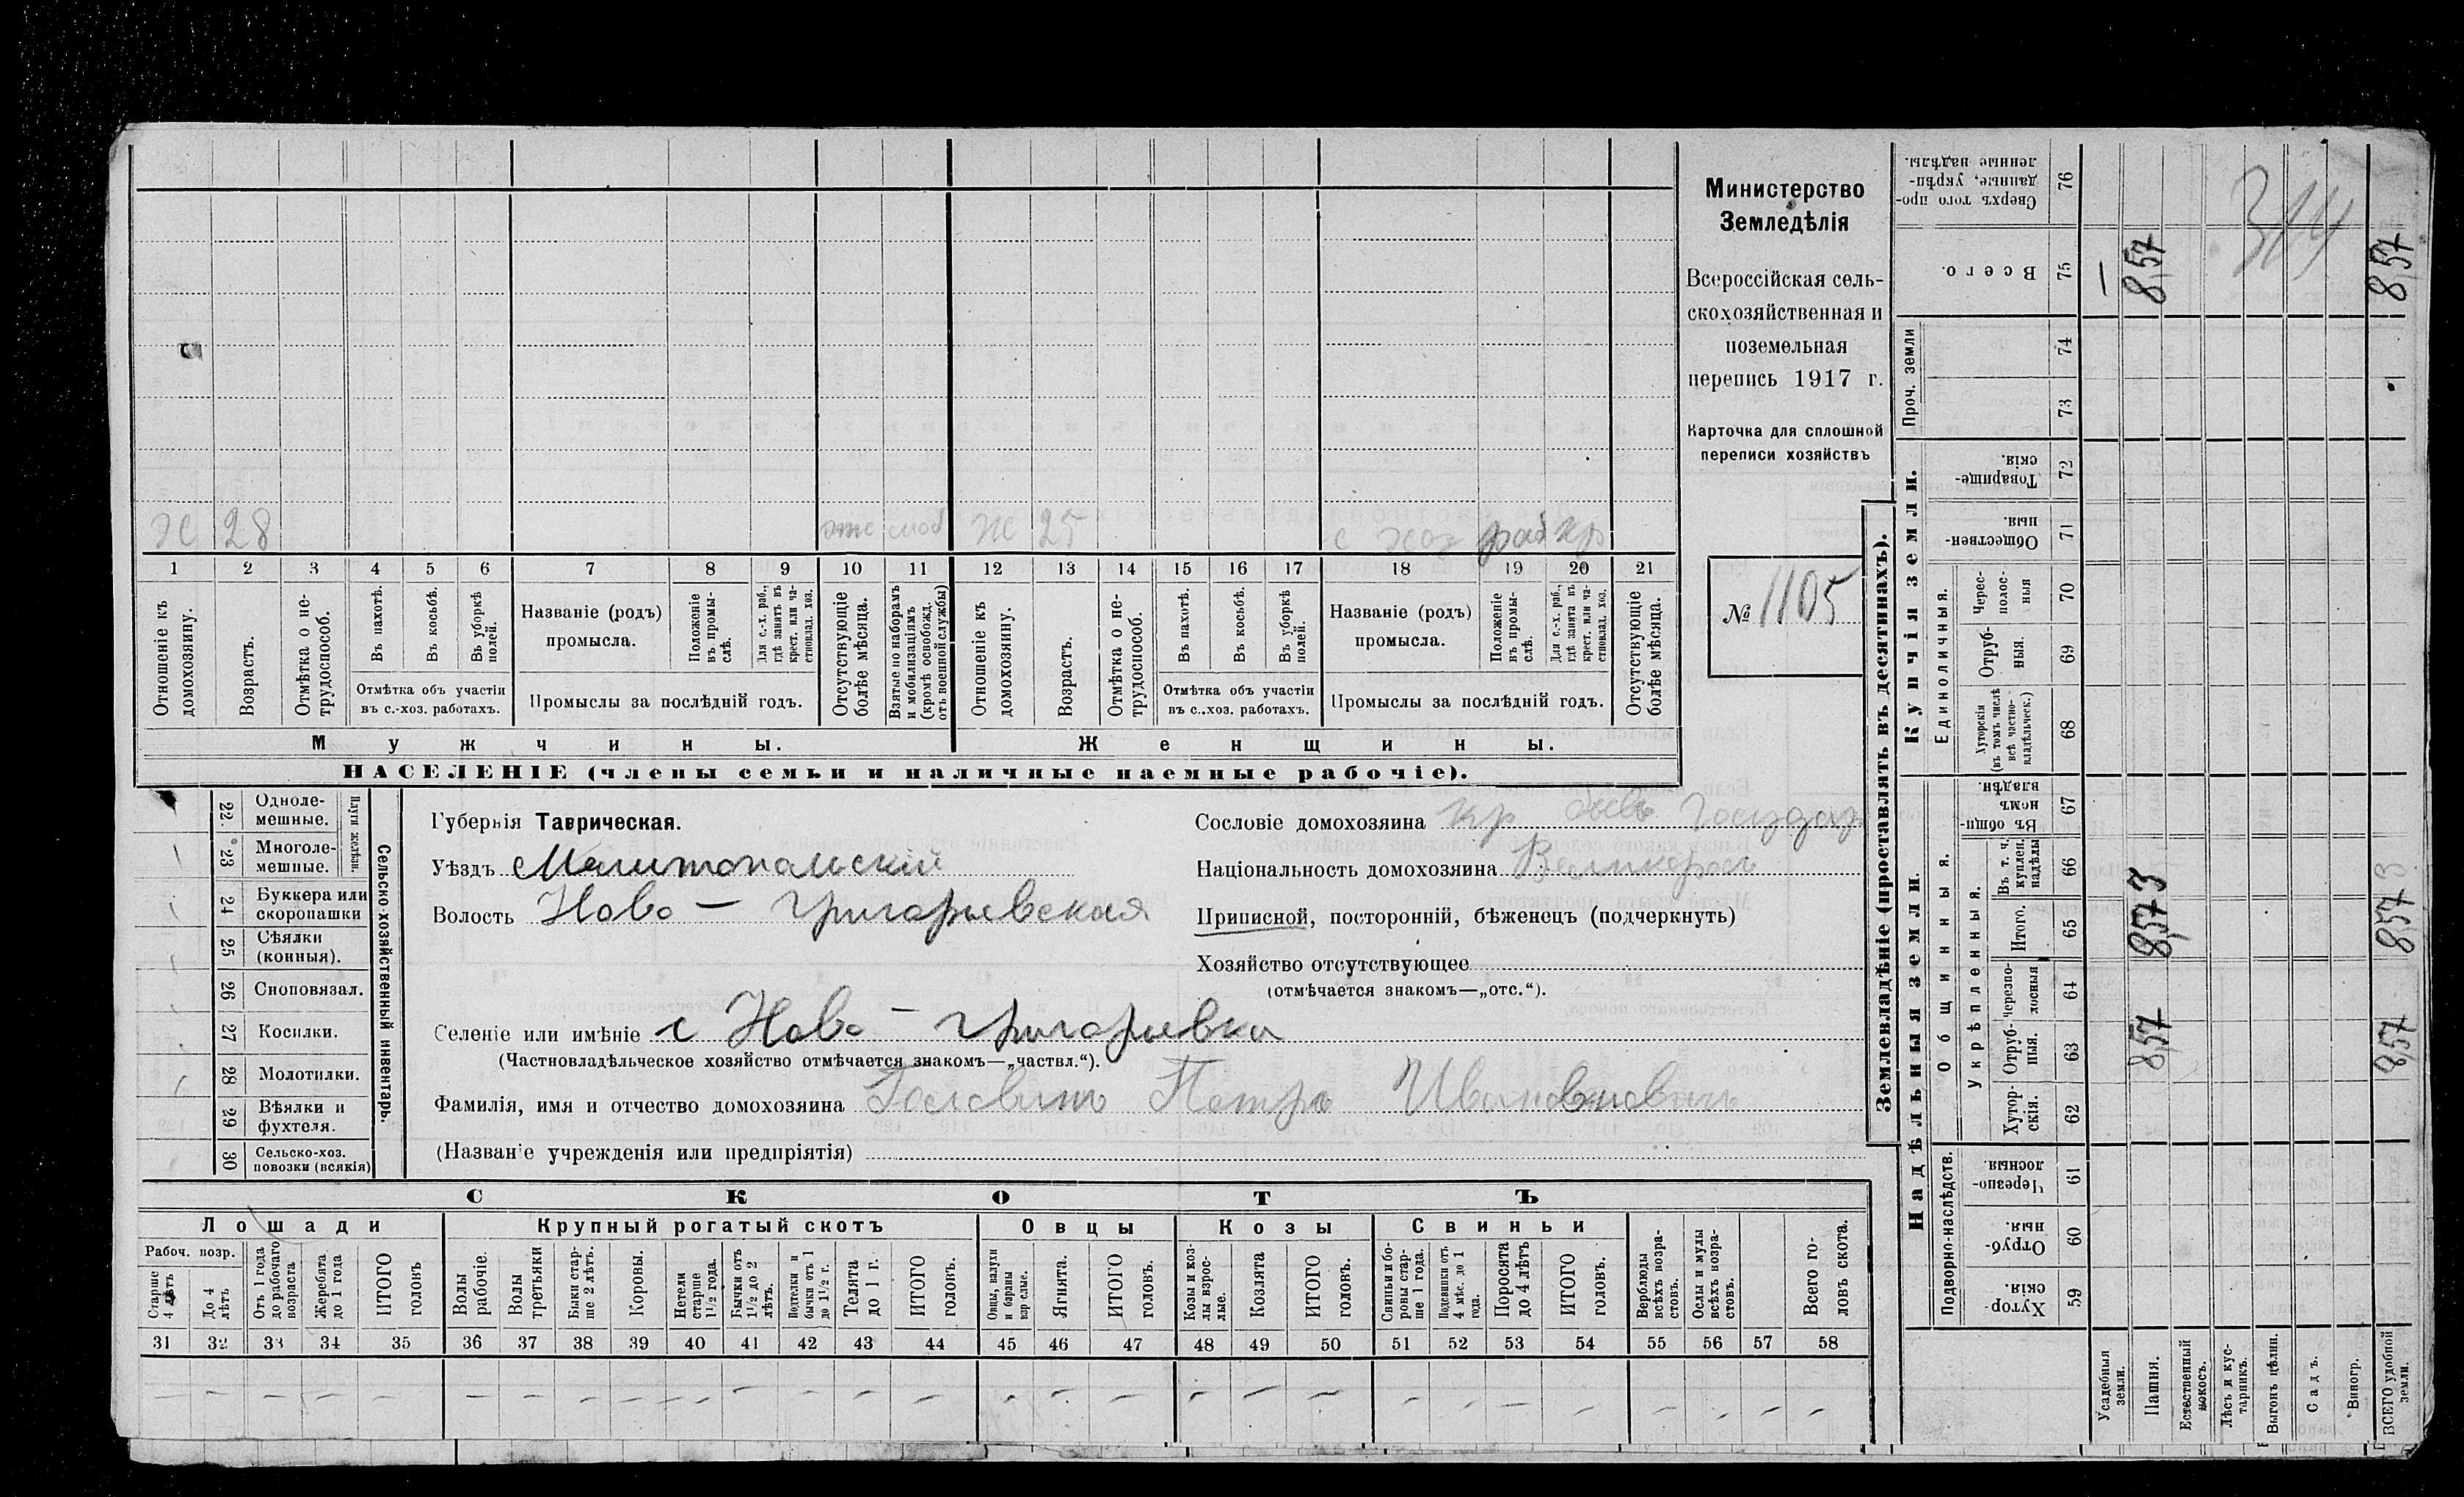 Министерство
Земледѣлія
Всероссійская сель-
скохозяйственная и
поземельная
перепись 1917 г.
Карточка для сплошной
переписи хозяйствъ
№ 1105
Х 28
Ж 25
с хоз раб
1 2 3 4 5 6 7 8 9 10 11 12 13 14 15 16 17 18 19 20 21
Отношеніе къ домохозяину.
Возрастъ.
Отмѣтка о не-трудоспособ.
Въ пахотѣ.
Въ косьбѣ.
Въ уборкѣ полей.
Отмѣтка объ участіи
въ с.-хоз. работахъ.
Названіе (родъ)
промысла.
Положеніе въ промы-слѣ.
Для с.-х. раб., гдѣ занятъ въ крест. или ча-стновлад. хоз.
Промыслы за послѣдній годъ.
Отсутствующіе болѣе мѣсяца.
Взятые по наборамъ и мобилизаціямъ (кромѣ освобожд. отъ военной службы)
Отношеніе къ домохозяину.
Возрастъ.
Отмѣтка о не-трудоспособ.
Въ пахотѣ.
Въ косьбѣ.
Въ уборкѣ полей.
Отмѣтка объ участіи
въ с.-хоз. работахъ.
Названіе (родъ)
промысла.
Положеніе въ промы-слѣ.
Для с.-х. раб., гдѣ занята въ крест. или ча-стновлад. хоз.
Промыслы за послѣдній годъ.
Отсутствующіе болѣе мѣсяца.
Мужчины.
Женщины.
НАСЕЛЕНІЕ (члены семьи и наличные наемные рабочіе).
22 Одноле-мешные.
23 Многоле-мешные.
Плуги желѣзн.
24 Буккера или скоропашки
25 Сѣялки (конныя).
26 Сноповязал.
27 Косилки.
28 Молотилки.
29 Вѣялки и фухтеля.
30 Сельско-хоз. повозки (всякія)
Сельско-хозяйственный инвентарь.
Губернія Таврическая.
Уѣздъ Мелитопольскій
Волость Ново - Григорьевская
Селеніе или имѣніе с Ново - Григорьевка
(Частновладѣльческое хозяйство отмѣчается знакомъ—„частвл.“).
Фамилія, имя и отчество домохозяина Головинъ Петръ Ивановичъ
(Названіе учрежденія или предпріятія)
Сословіе домохозяина кр бывъ Государ
Національность домохозяина Великоросъ
Приписной, посторонній, бѣженецъ (подчеркнуть)
Хозяйство отсутствующее
(отмѣчается знакомъ—„отс.“).
СКОТЪ
Лошади
Рабоч. возр.
Старше 4 лѣтъ
До 4 лѣтъ
Отъ 1 года до рабочаго возраста
Жеребята до 1 года
ИТОГО головъ
Крупный рогатый скотъ
Волы рабочіе.
Волы третьяки
Быки стар-ше 2 лѣтъ.
Коровы.
Нетели старше 1½ года.
Бычки отъ 1½ до 2 лѣтъ.
Подтелки и бычки отъ 1 до 1½ г.
Телята до 1 г.
ИТОГО головъ.
Овцы
Овцы, валухи и бараны взрослые.
Ягнята.
ИТОГО головъ.
Козы
Козы и коз-лы взрос-лые.
Козлята
ИТОГО головъ.
Свиньи
Свиньи и бо-ровы стар-ше 1 года.
Подсвинки отъ 4 мѣс. до 1 года.
Поросята до 4 лѣтъ
ИТОГО головъ.
Верблюды всѣхъ возра-стовъ.
Ослы и мулы всѣхъ возра-стовъ.
Всего го-ловъ скота.
31 32 33 34 35 36 37 38 39 40 41 42 43 44 45 46 47 48 49 50 51 52 53 54 55 56 57 58
Землевладѣніе (проставлять въ десятинахъ).
Купчія земли.
Надѣльныя земли.
Сверхъ того про-данные, укрѣп-ленные надѣлы. 76
Всего. 75
Проч. земли 74
73
Товарище-скія. 72
Обществен-ныя. 71
Единоличныя.
Черес-полос-ныя 70
Отруб-ныя. 69
Хуторскія (въ томъ числѣ всѣ частно-владѣльческ.) 68
Въ общин-номъ владѣн. 67
Общинныя.
Укрѣпленныя.
Въ т. ч. куплен. надѣлы 66
Итого. 65
Черезпо-лосныя 64
Отруб-ныя. 63
Хутор-скія. 62
Подворно-наслѣдств.
Черезпо-лосныя. 61
Отруб-ныя. 60
Хутор-скія. 59
Усадебныя земли.
Пашня.
Естественный покосъ.
Лѣсъ и кус-тарникъ.
Выгонъ цѣлин.
Садъ.
Виногр.
ВСЕГО удобной земли.
8,57 8,57 3 8,57
8,57 8,57 3 8,57
314